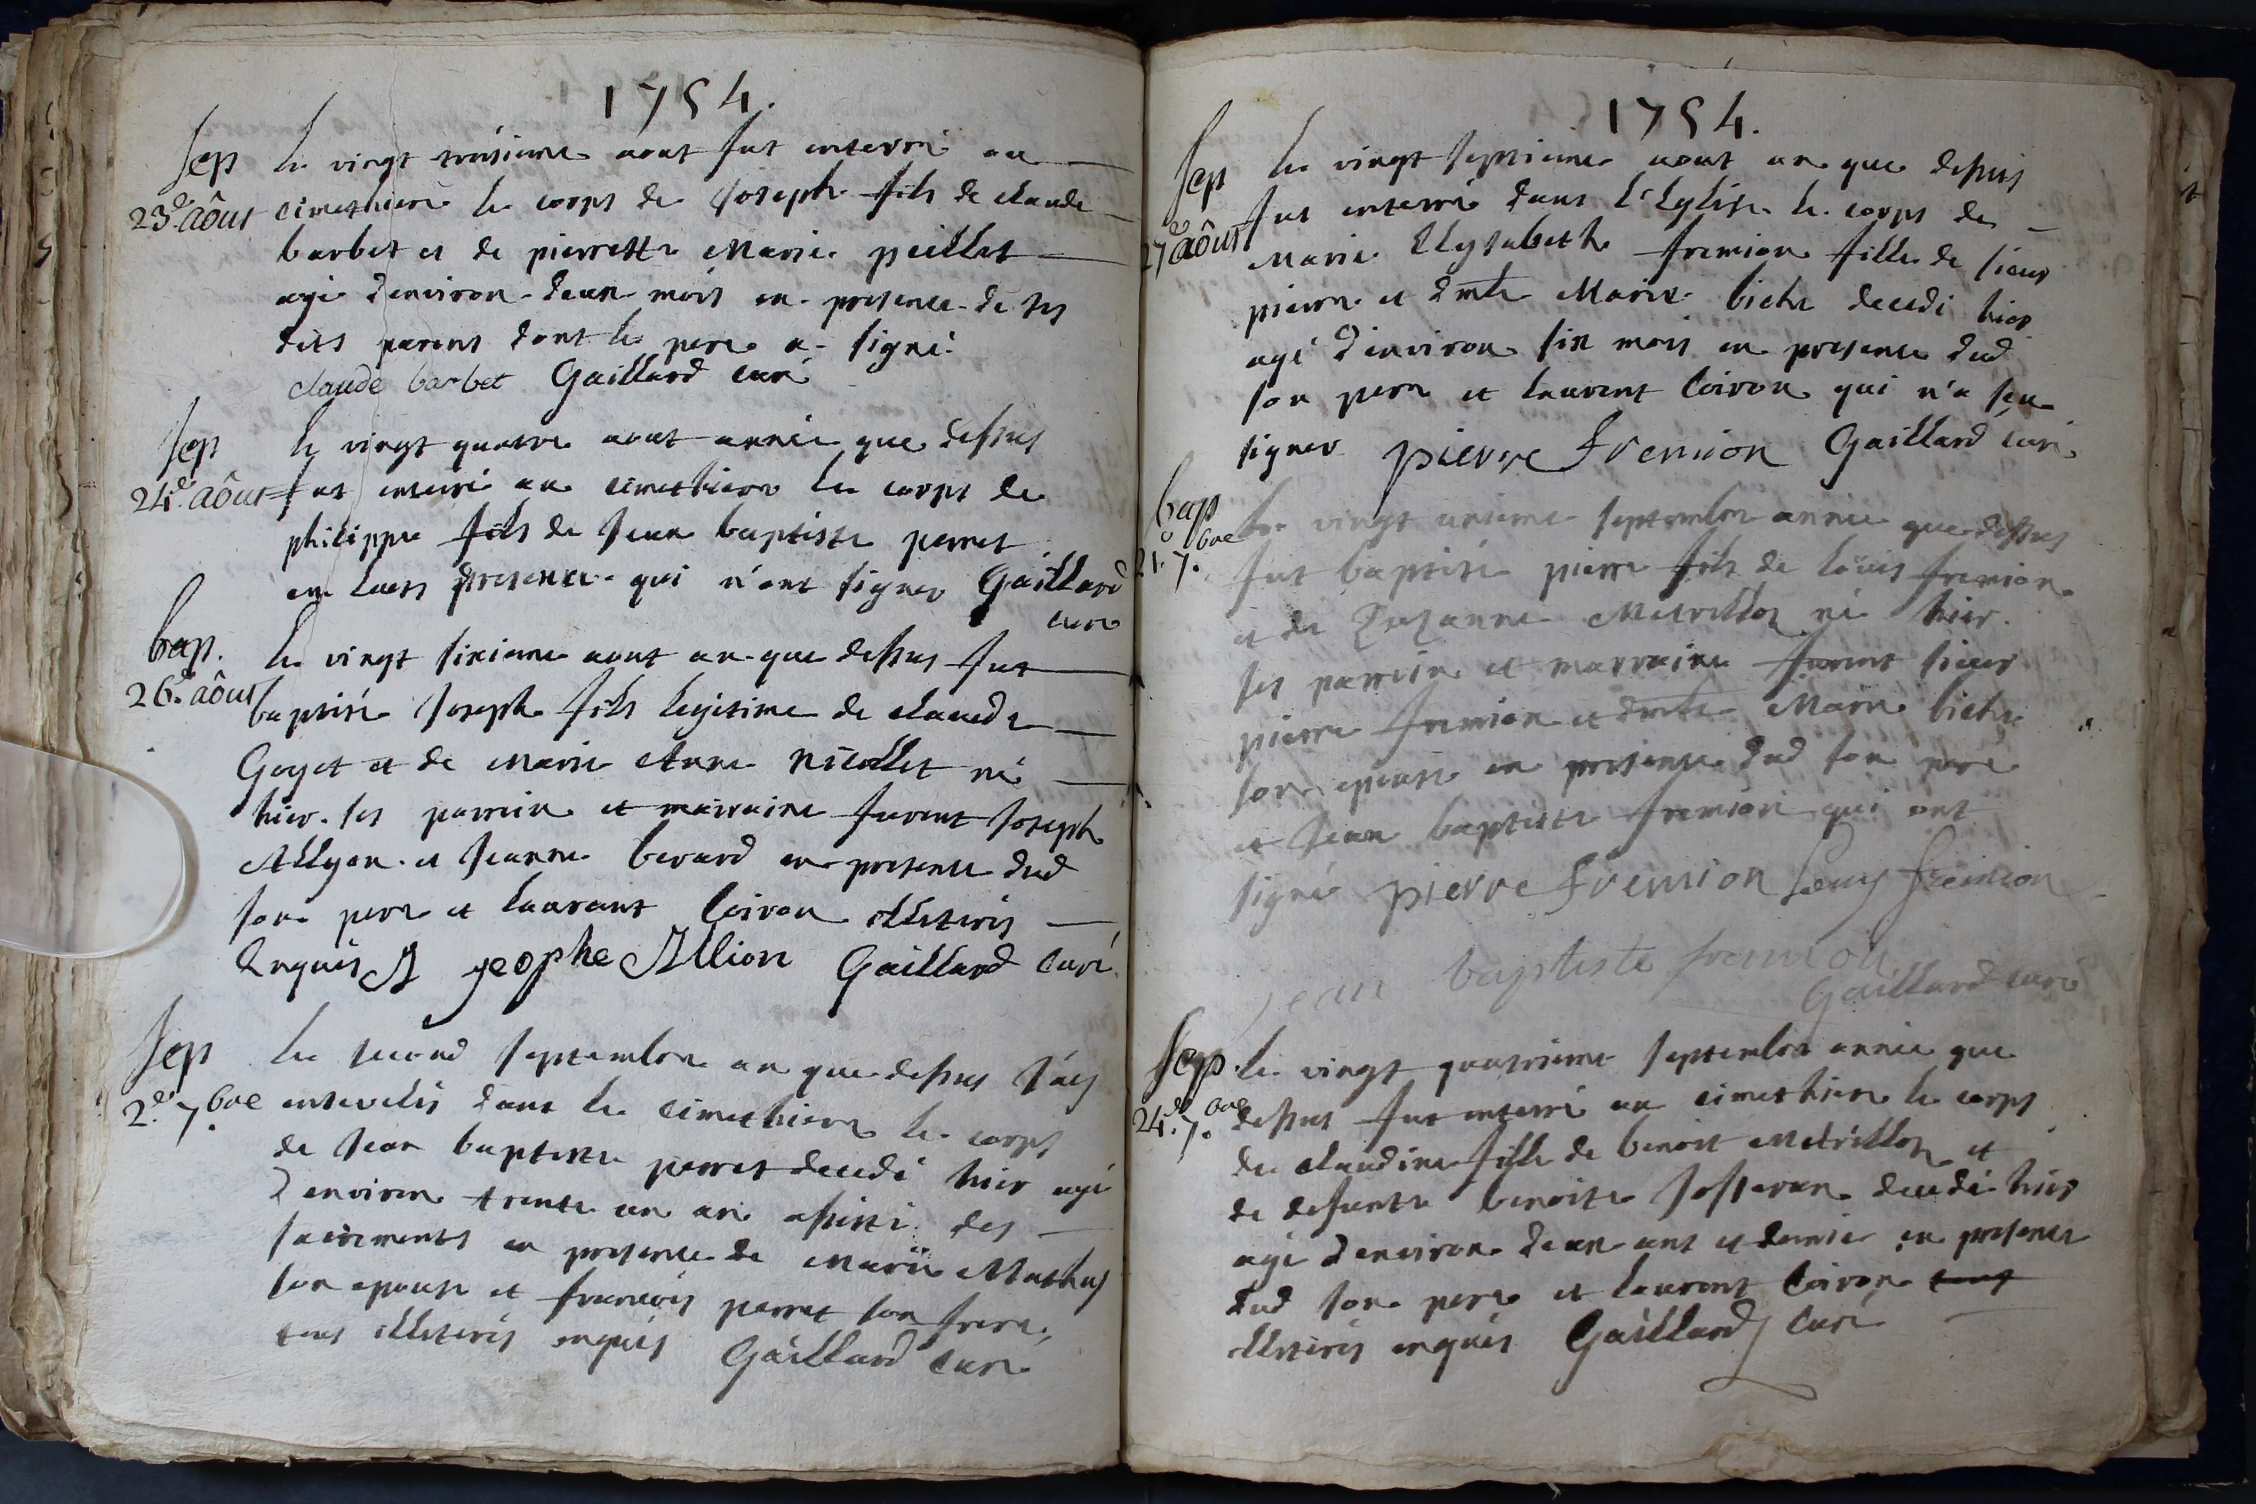 1754.
Sep le vingt troisieme aout fut enterré au
23.e aôut cimethiere le corps de Joseph fils de claude
barbet et de pierrette Marie peillet
agé denviron deux mois en presence de ses
dits parens dont le pere a signé
claude barbet Gaillard curé
Sep le vingt quatre aout année que dessus
24.e aôut fut enterré au cimethiere le corps de
philippe fils de Jean baptiste perret
en leurs presence qui n'ont signer Gaillard
curé
bap. le vingt sixieme aout an que dessus fut
26.e aôut baptisé Joseph fils legitime de claude
Goyet et de Marie Anne nicollet né
hier. ses parrein et marraine furent Joseph
Allyon et Jeanne berard en presence dud
son pere et laurant Coiron illeteris
Enquis J Jeophe Allion Gaillard Curé
Sep le second septembre an que dessus J'ay
2.e 7.bre enseveli dans le cimethiere le corps
de Jean baptiste perret decedé hier agé
d'environ trente un an assisté des
sacrements en presence de Marie Mathuy
son epouse et francois perret son frere,
tous illeteris enquis Gaillard Curé
1754.
Sep le vingt septieme aout an que dessus
27.e aôut fut enterré dans l'Eglise le corps de
Marie Elysabeth fremion fille de sieur
pierre et dmlle Marie biche decedé hier
agé d'environ six mois en presence dud
son pere et laurent Coiron qui n'a sçu
signer pierre fremion Gaillard Curé
bap le vingt unieme septembre année que dessus
21. 7.bre fut baptisé pierre fils de loüis fremion
et de Suzanne Metrillot né hier.
ses parrein et marraine furent sieur
pierre fremion et dmlle Marie biche
son epouse en presence dud son pere
et Jean baptiste fremion qui ont
signé pierre fremion Louy fremion
jean baptiste fremion
Gaillard curé
Sep. le vingt quatrieme septembre année que
24.e 7.bre dessus fut enterré au cimethiere le corps
de claudine fille de benoit Metrillot et
de defunte benoite Josserand decedé hier
agé d'environ deux ans et demie en presence
dud son pere et laurent Coiron tous
illeteris enquis Gaillard Curé